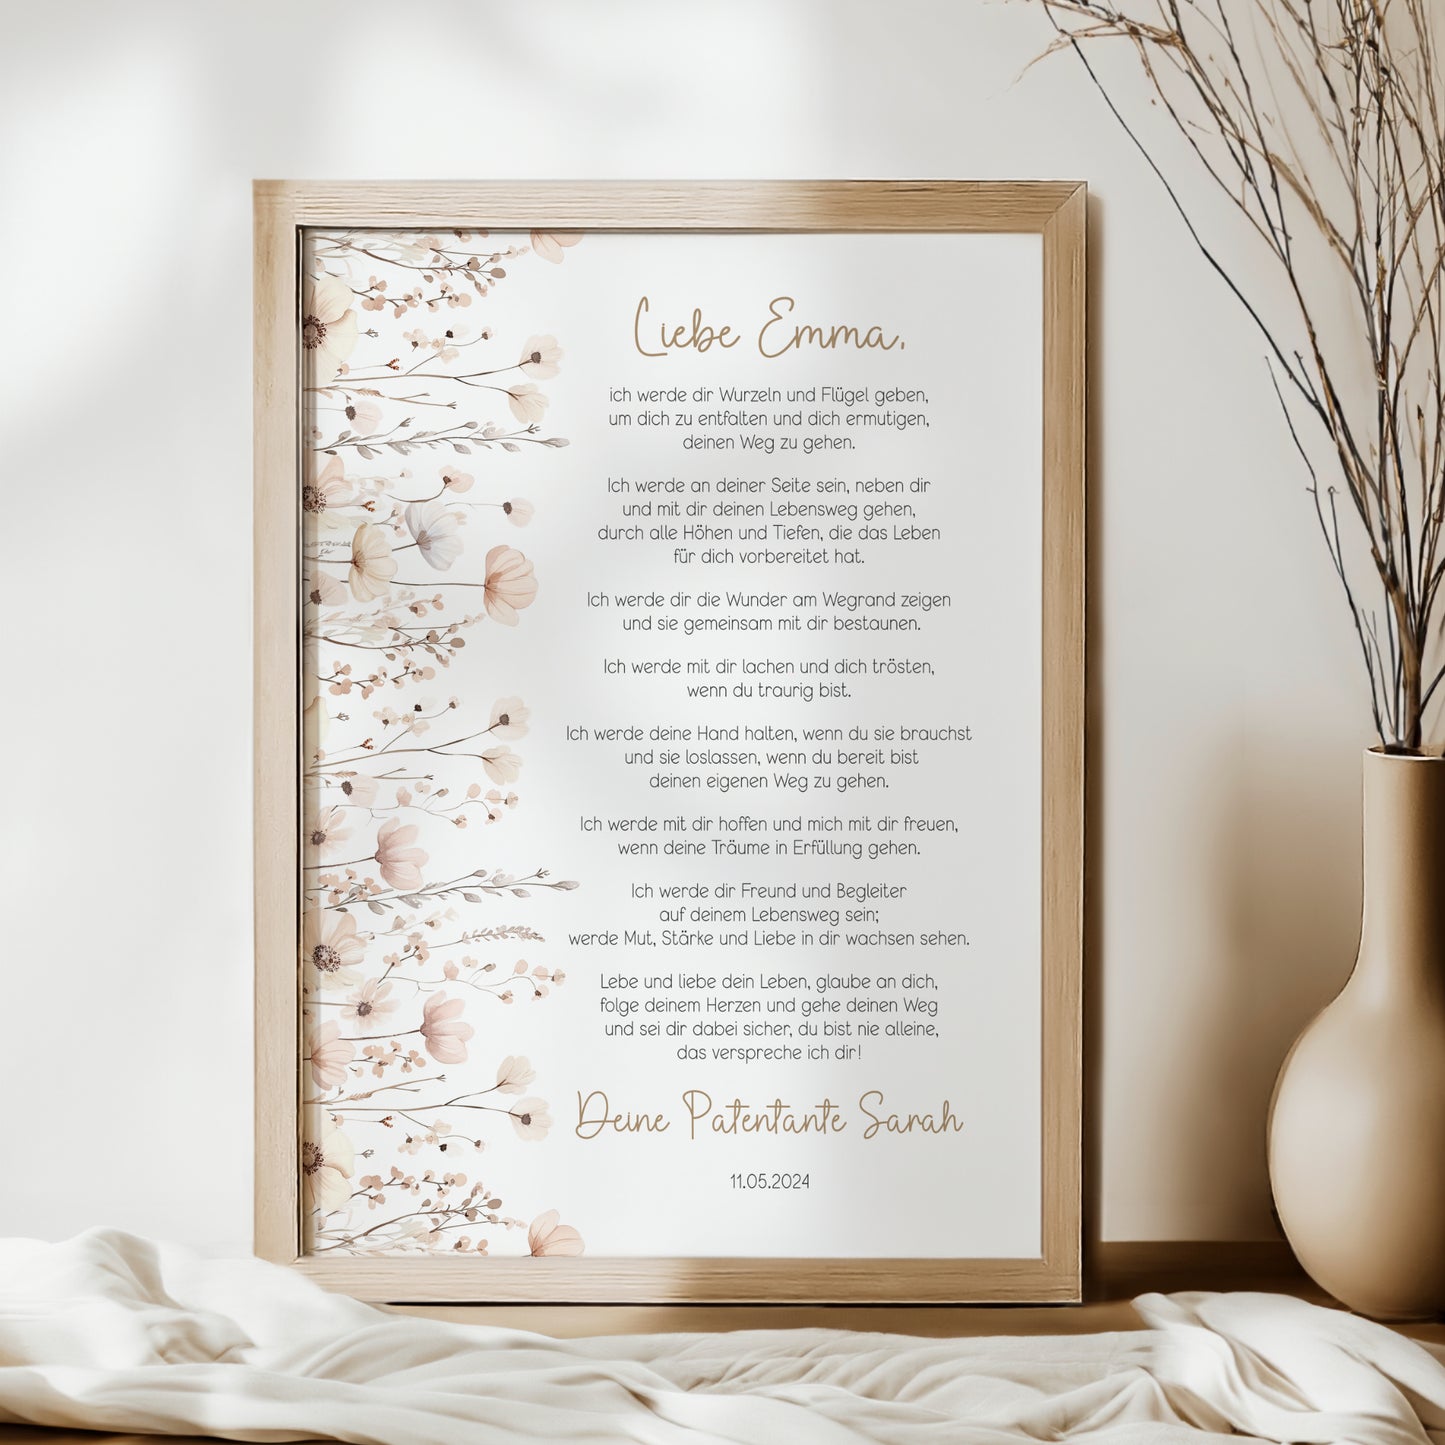 Liebe Emma,
ich werde dir Wurzeln und Flügel geben,
um dich zu entfalten und dich ermutigen,
deinen Weg zu gehen.
Ich werde an deiner Seite sein, neben dir
und mit dir deinen Lebensweg gehen,
durch alle Höhen und Tiefen, die das Leben
für dich vorbereitet hat.
Ich werde dir die Wunder am Wegrand zeigen
und sie gemeinsam mit dir bestaunen.
Ich werde mit dir lachen und dich trösten,
wenn du traurig bist.
Ich werde deine Hand halten, wenn du sie brauchst
und sie loslassen, wenn du bereit bist
deinen eigenen Weg zu gehen.
Ich werde mit dir hoffen und mich mit dir freuen,
wenn deine Träume in Erfüllung gehen.
Ich werde dir Freund und Begleiter
auf deinem Lebensweg sein;
werde Mut, Stärke und Liebe in dir wachsen sehen.
Lebe und liebe dein Leben, glaube an dich,
folge deinem Herzen und gehe deinen Weg
und sei dir dabei sicher, du bist nie alleine,
das verspreche ich dir!
Deine Patentante Sarah
11.05.2024